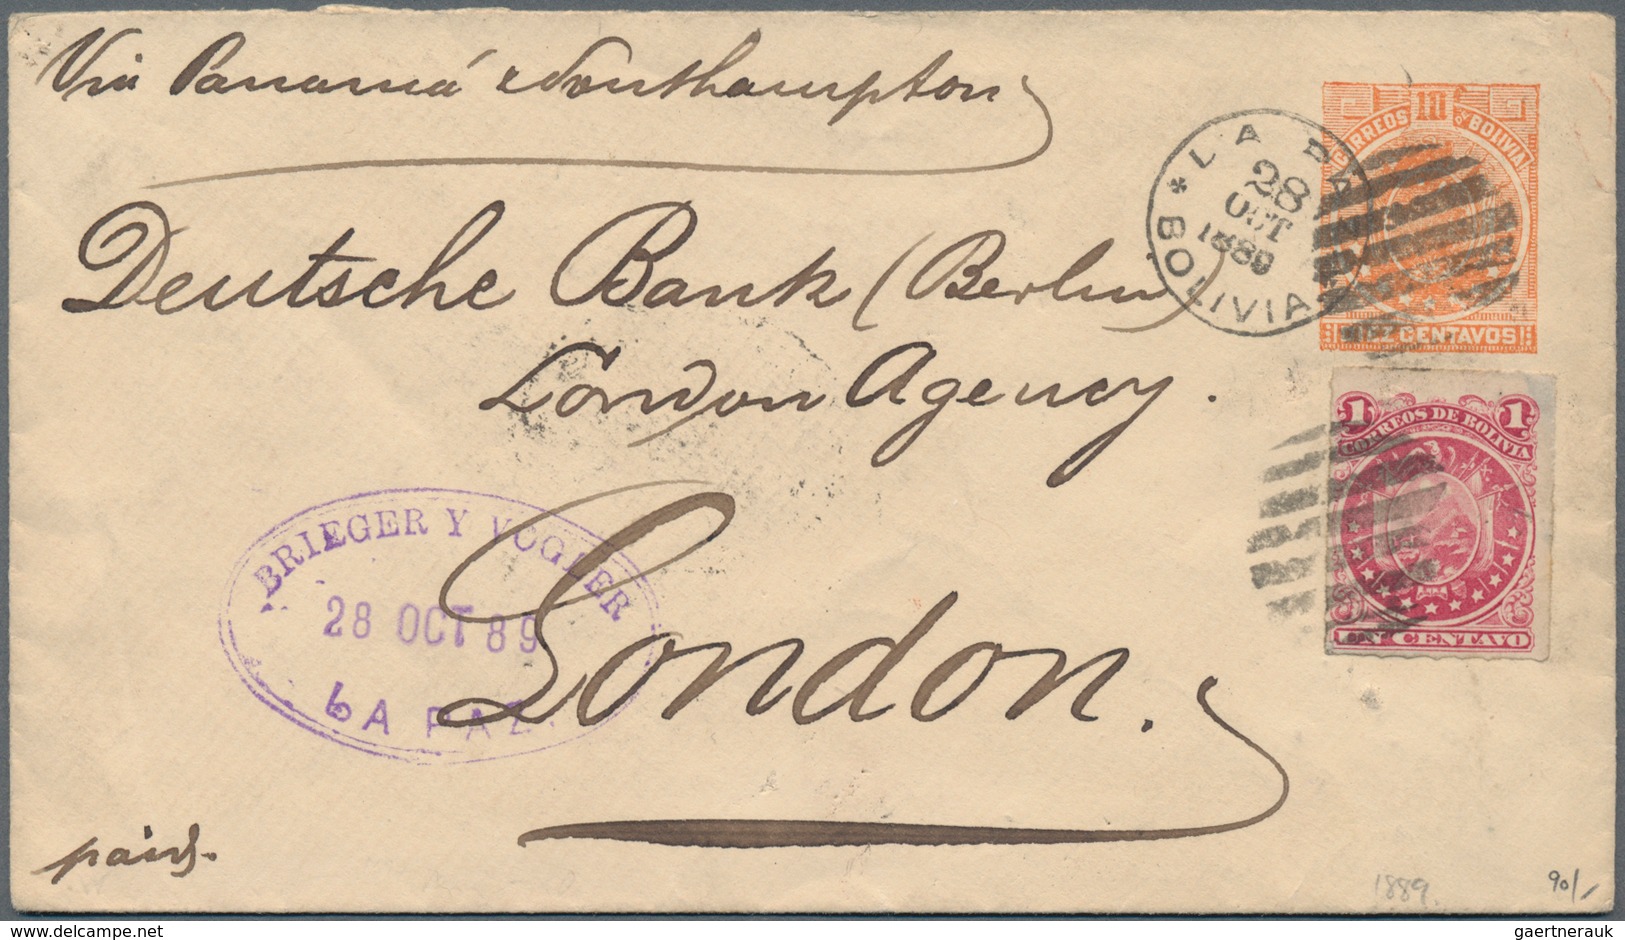 Via Panamá & Southampton
Deutsche Bank (Berlin)
London Agency.
London.
paid.
BRIEGER Y VOGLER
28 OCT 89
LA PAZ.
LA PAZ
28
OCT
1889
* BOLIVIA
10
CORREOS DE BOLIVIA
DIEZ CENTAVOS
1 1
CORREOS DE BOLIVIA
UN CENTAVO
1889.
90/-
delcampe.net
gaertnerauk